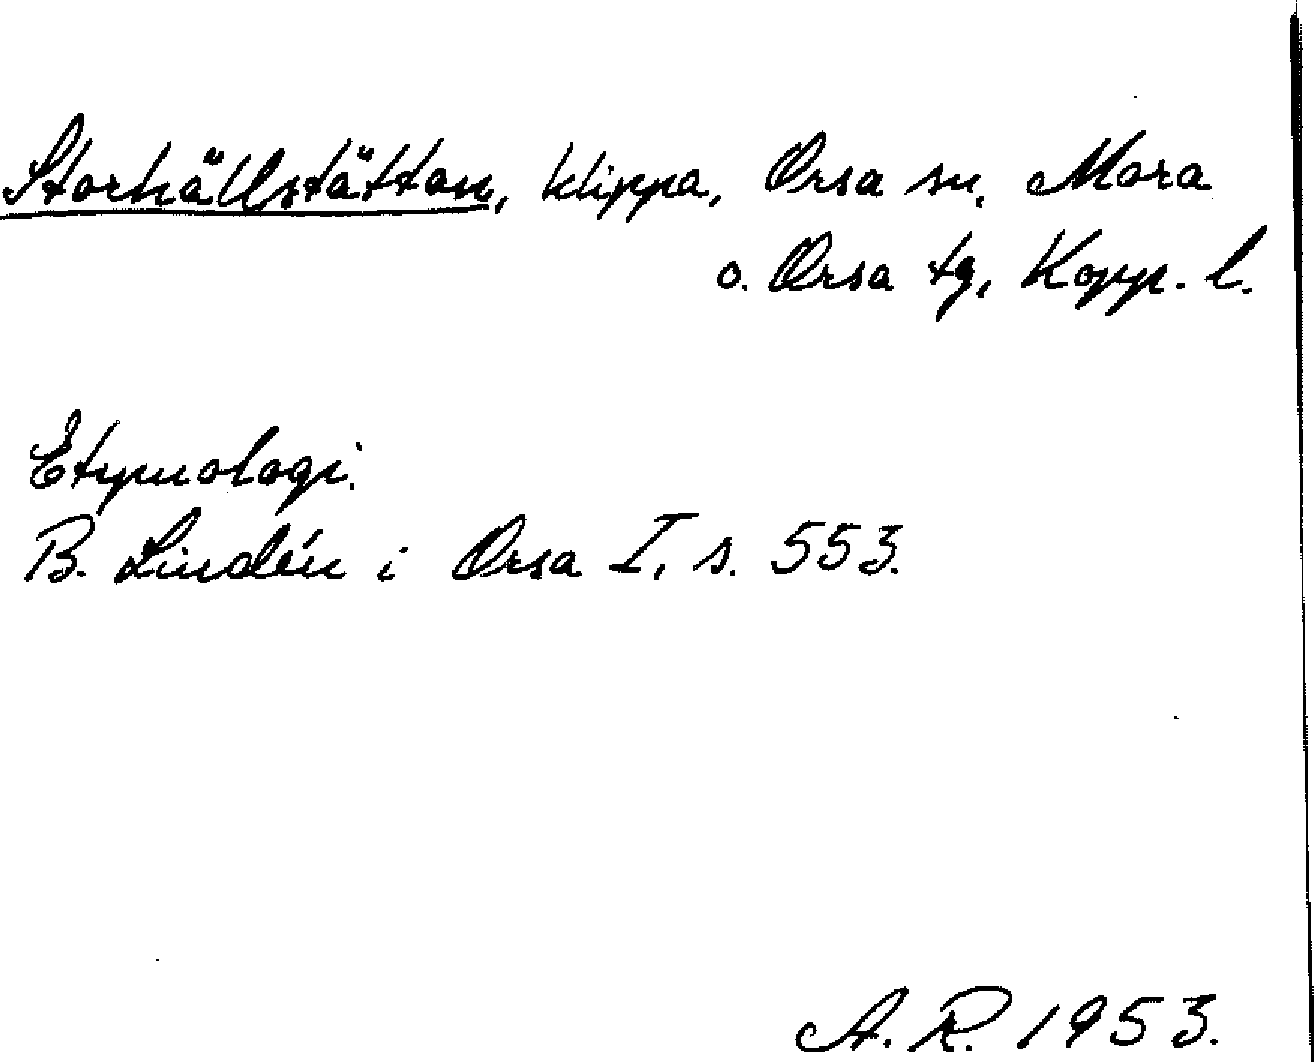 Storhällstättan, klippa, Orsa sn, Mora
o. Orsa tg, Kopp. l.
Etymologi.
B. Lindén i Orsa I, s. 553.
A. R. 1953.